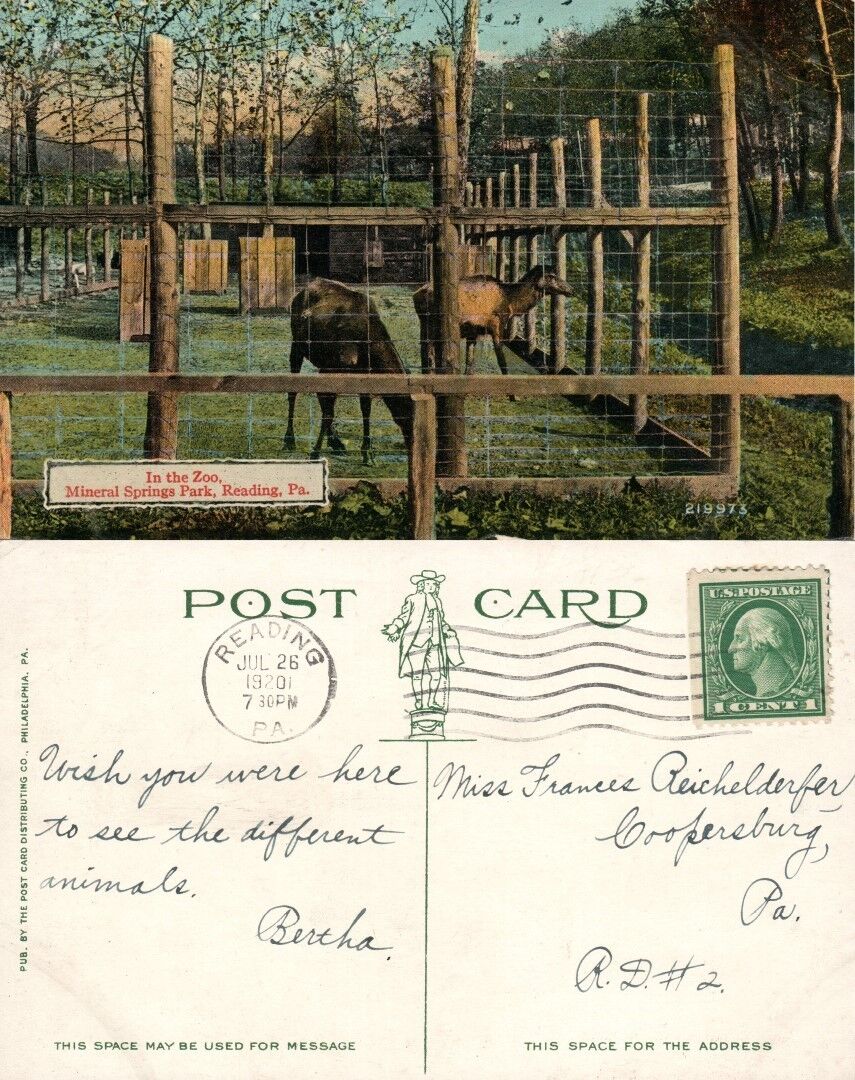 In the Zoo,
Mineral Springs Park, Reading, Pa.
219973
POST CARD
READING
JUL 26
1920
7 30PM
PA.
U.S. POSTAGE
1 CENT 1
PUB. BY THE POST CARD DISTRIBUTING CO., PHILADELPHIA, PA.
Wish you were here
to see the different
animals.
Bertha.
Miss Frances Reichelderfer,
Coopersburg,
Pa.
R.D.#2.
THIS SPACE MAY BE USED FOR MESSAGE
THIS SPACE FOR THE ADDRESS